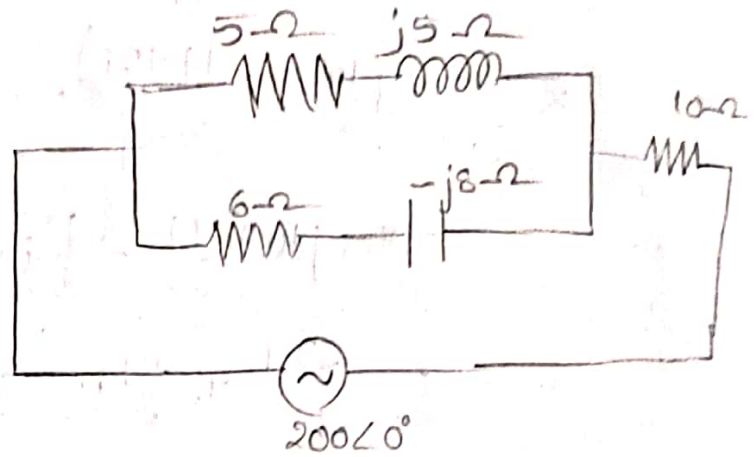 5Ω j5Ω
10Ω
6Ω -j8Ω
200∠0°